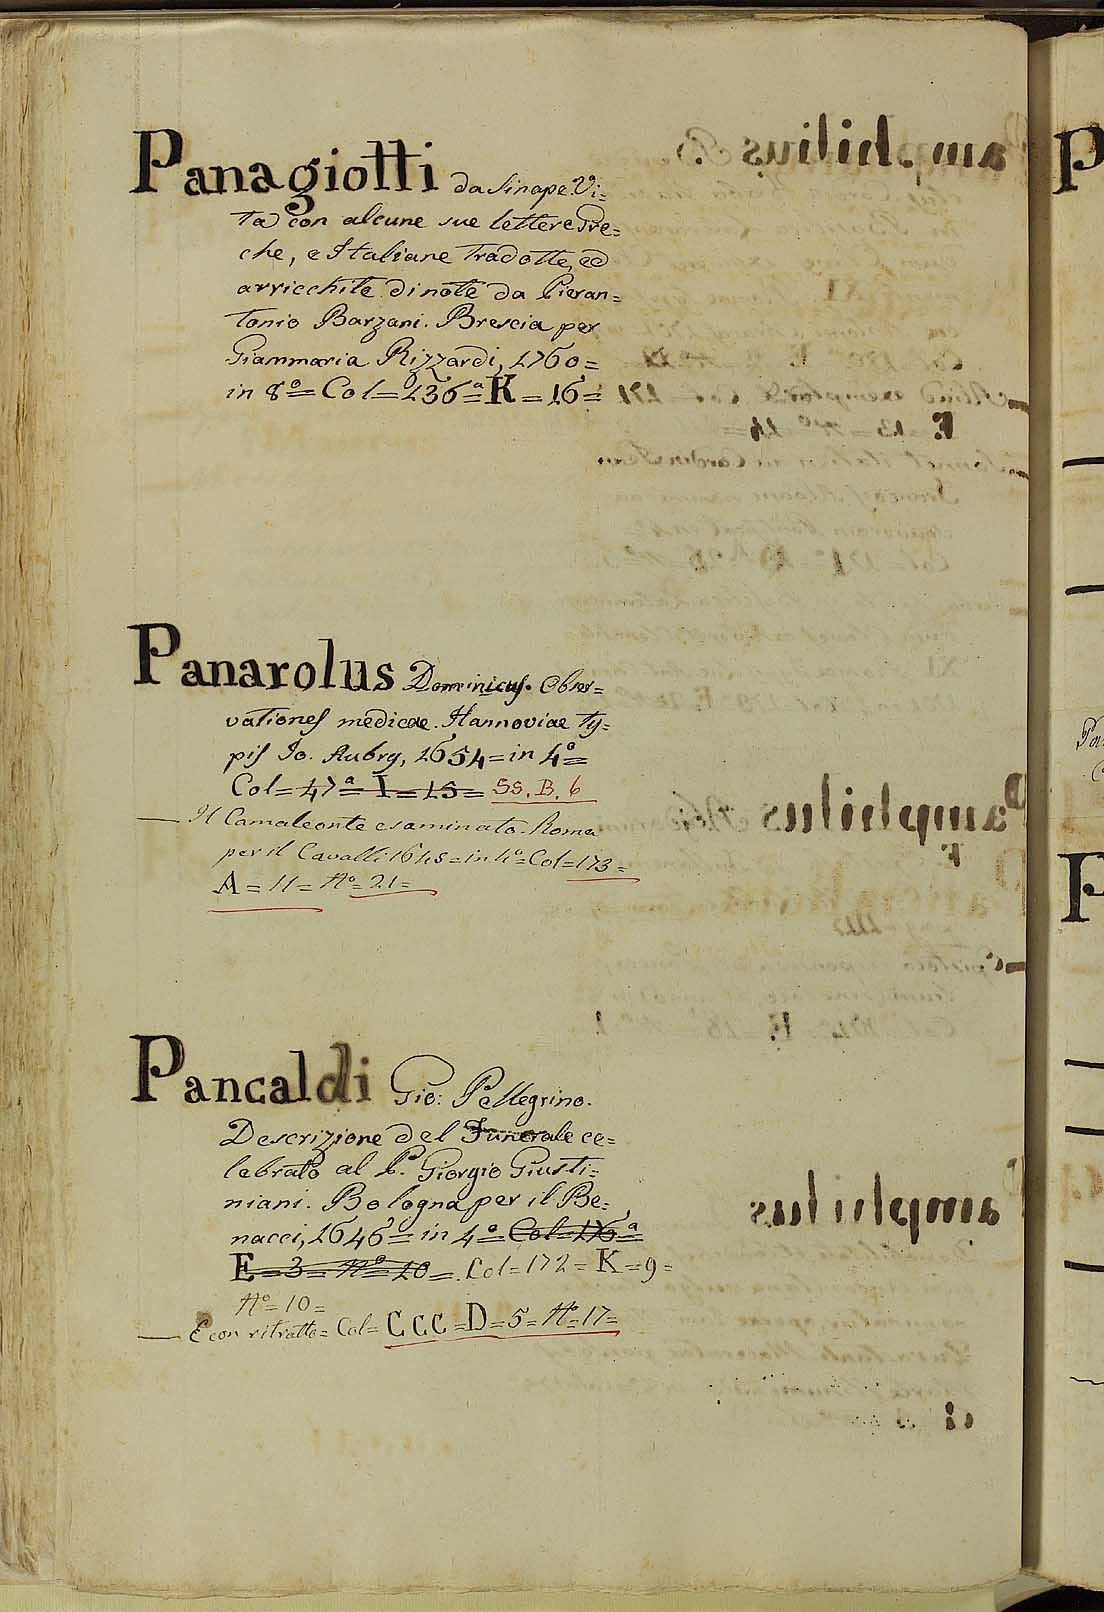 Panagiotti da Sinape. Vi=
ta con alcune sue lettere Gre=
che, e Italiane Tradotte, ed
arricchite di note da Pieran=
tonio Barzani. Brescia per
Giammaria Rizzardi, 1760=
in 8º= Col= 136ª= K= 16=
Panarolus Dominicus. Obser=
vationes medicae. Hannoviae ty=
pis Io. Aubry, 1654= in 4º=
Col= 47ª= I= 15= SS. B. 6
— Il Camaleonte esaminato. Roma
per il Cavalli 1645= in 4º= Col= 173=
A= 11= Nº= 21=
Pancaldi Gio: Pellegrino.
Descrizione del Funerale ce=
lebrato al P. Giorgio Giusti=
niani. Bologna per il Be=
nacci, 1646= in 4º= Col= 176ª=
E= 3= Nº= 20=. Col= 172= K= 9=
Nº= 10=
— E con ritratto= Col= CCC= D= 5= Nº= 17=